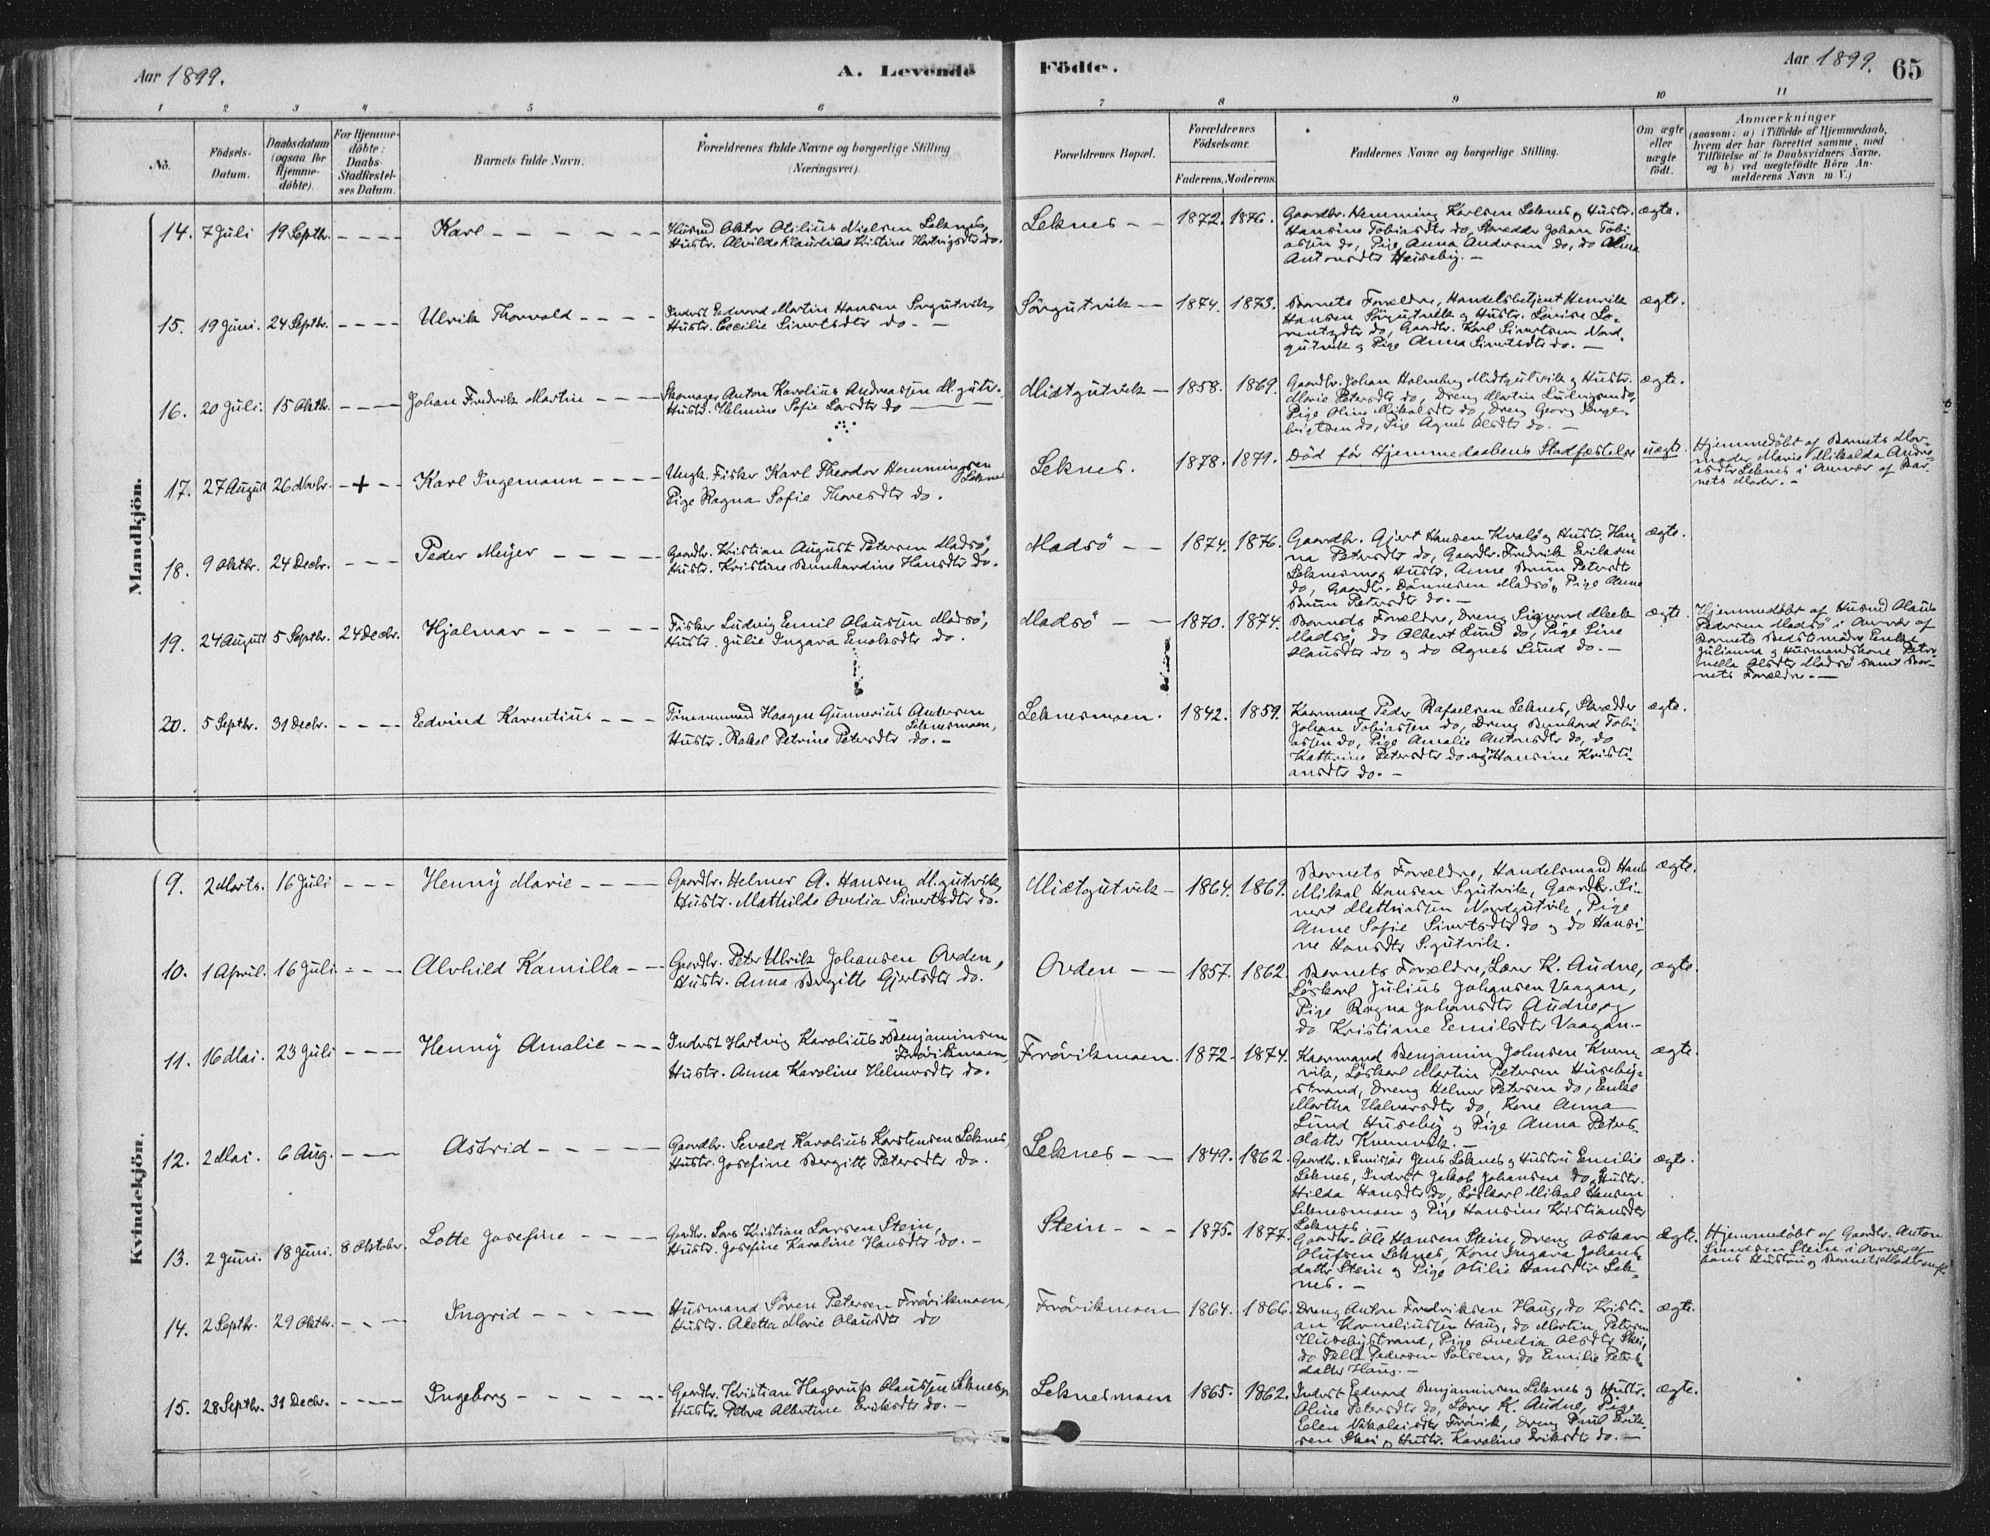 Aar 1899.
A. Levende
Födte.
Aar 1899.
65
1 2 3 4 5 6 7 8 9 10 11
No.
Födsels-
Datum.
Daabsdatum
(ogsaa for
Hjemme-
döbte).
For Hjemme-
döbte:
Daabs-
Stadfæstel-
ses Datum.
Barnets fulde Navn.
Forældrenes fulde Navne og borgerlige Stilling
(Næringsvei).
Forældrenes Bopæl.
Forældrenes
Födselsaar.
Faderens. Moderens.
Faddernes Navne og borgerlige Stilling.
Om ægte
eller
uægte
födt.
Anmærkninger
(saasom: a) i Tilfælde af Hjemmedaab,
hvem der har forrettet samme, med
Tilföielse af to Daabsvidners Navne,
og b) ved uægtefödte Börn An-
melderens Navn m. V.)
Mandkjön.
14. 7 Juli 19 Septbr. Karl
Husmd Oktor Otilius Nielsen Leknes,
Hustr. Alvilde Klaudia Kristine Hartvigsdtr do.
Leknes 1872. 1876.
Gaardbr. Hemming Karlsen Leknes og Hustr.
Hansine Tobiasdtr do, Skrædder Johan Tobi-
assen do, Pige Anna Andersen do, do Alma
Antonsdtr Huseby.
ægte.
15. 19 Juni. 24 Septbr. Ulrik Thorvald
Inderst Edvard Martin Hansen Sørgutvik,
Hustr. Cecilie Sivertsdtr do.
Sörgutvik 1874. 1873.
Barnets Forældre, Handelsbetjent Henrik
Hansen Sörgutvik og Hustr. Lovise Lo-
rentzdtr do, Gaardbr. Karl Sivertsen Nord-
gutvik og Pige Anna Sivertsdtr do.
ægte.
16. 20 Juli. 15 Oktbr. Johan Fredrik Martin
Skomager Anton Karolius Andreassen M.gutv.
Hustr. Helmine Sofie Larsdtr do
Midtgutvik 1858. 1869.
Gaardbr. Johan Holmberg Midtgutvik og Hustr.
Marie Petersdtr do, Dreng Martin Ludvigsen do,
Pige Oline Mikalsdtr do, Dreng Georg Inge-
brigtsen do, Pige Agnes Olsdtr do.
ægte.
17. 27 August 26 Novbr. + Karl Ingemann
Ungk. Fisker Karl Theodor Hemmingsen
Leknes
Pige Ragna Sofie Thoresdtr do.
Leknes. 1878. 1879.
Död för Hjemmedaabens Stadfæstelse
uægte.
Hjemmedøbt af Barnets Mor-
moder Marie Mikalda Andre-
asdtr Leknes i Overvær af Bar-
nets Moder.
18. 9 Oktbr. 24 Decbr. Peder Meÿer
Gaardbr. Kristian August Petersen Madsö,
Hustr. Kristine Bernhardine Hansdtr do.
Madsö 1874. 1876.
Gaardbr. Gjert Hansen Kvalö og Hustr. Han-
na Petersdtr do, Gaardbr. Fredrik Eriksen
Leknesmo og Hustr. Anne Brun Petersdtr
do, Gaardbr. Dönnesen Madsö, Pige Anne
Brun Petersdtr do.
ægte.
19. 24 August 5 Septbr. 24 Decbr. Hjalmar
Fisker Ludvig Emil Olaussen Madsö,
Hustr. Julie Ingara Enoksdtr do.
Madsö 1870. 1874.
Barnets Forældre, Dreng Sigvard Meek
Madsö, do Albert Lund do, Pige Line
Olausdtr do og do Agnes Lund do.
ægte.
Hjemmedøbt af Husmd Olaus
Pedersen Madsö i Overvær af
Barnets Bedstemödre Enke
Julianna og Husmandskone Peter-
nella Olsdtr Madsö samt Bar-
nets Forældre.
20. 5 Septbr. 31 Decbr. Edvind Karentius
Tömmermand Haagen Gunnerius Andersen
Leknesmoen,
Hustr. Rakel Petrine Petersdtr do.
Leknesmoen. 1842. 1859.
Kaarmand Peder Rafaelsen Leknes, Skrædder
Johan Tobiassen do, Dreng Bernhard Tobi-
assen do, Pige Amalie Antonsdtr do, do
Kathrine Petersdtr do og Hansine Kristi-
ansdtr do.
ægte.
Kvindekjön.
9. 2 Marts. 16 Juli Hennÿ Marie
Gaardbr. Helmer A. Hansen M.gutvik,
Hustr. Mathilde Ovedia Sivertsdtr do.
Midtgutvik 1864. 1869.
Barnets Forældre, Handelsmand Hans
Mikal Hansen S.gutvik, Gaardbr. Si-
vert Mathiassen Nordgutvik, Pige
Anne Sofie Sivertsdtr do og do Hansi-
ne Hansdtr S.gutvik.
ægte.
10. 1 April. 16 Juli Alvhild Kamilla
Gaardbr. Peter Ulrik Johansen Ovden,
Hustr. Anna Bergitte Gjertsdtr do.
Ovden 1857. 1862
Barnets Forældre, Lærer K. Audne,
Löskarl Julius Johansen Vaagan,
Pige Ragna Johansdtr Audne, og
do Kristiane Emilsdtr Vaagan.
ægte.
11. 16 Mai. 23 Juli Hennÿ Amalie
Inderst Hartvig Karolius Benjaminsen
Frövikmoen,
Hustr. Anna Karoline Helmersdtr do.
Frövikmoen. 1872. 1874.
Kaarmand Benjamin Johnsen Kvern-
vik, Löskarl Martin Petersen Huseby-
strand, Dreng Helmer Petersen do, Enke
Martha Halvarsdtr do, Kone Anna
Lund Huseby og Pige Anna Peters-
datter Kvernvik.
ægte.
12. 2 Mai. 6 Aug. Astrid
Gaardbr. Sevald Karolius Karstensen Leknes,
Hustr. Josefine Bergitte Petersdtr do.
Leknes 1849. 1862.
Gaardbr. & Emissær Jens Leknes og Hustru Emilie
Leknes, Inderst Jakob Johansen do, Hustr.
Hilda Hansdtr do, Löskarl Mikal Hansen
Leknesmoen og Pige Hansine Kristiansdtr
Leknes
ægte.
13. 2 Juni. 18 Juni. 8 Oktober. Lotte Josefine
Gaardbr. Lars Kristian Larsen Stein,
Hustr. Josefine Karoline Hansdtr do.
Stein 1875. 1877.
Gaardbr. Ole Hansen Stein, Dreng Oskar
Olufsen Leknes, Kone Ingara Johans-
datter Stein og Pige Otilie Hansdtr Lek-
nes.
Ægte.
Hjemmedøbt af Gaardbr. Anton
Stein i Overvær af
hans Hustru og Barnets
14. 2 Septbr. 29 Oktbr. Ingrid
Husmand Sören Petersen Frövikmoen,
Hustr. Aletta Marie Olausdtr do
Frövikmoen 1864. 1866.
Dreng Anton Fredriksen Haug, do Kristi-
an Korneliussen Haug, do Martin Petersen
Husebystrand, Pige Ovedia Olsdtr Skei,
do Pedersen Solsem, do Emilie Peters-
datter Haug.
ægte.
15. 28 Septbr. 31 Decbr. Ingeborg
Gaardbr. Kristian Hagerup Olaussen Leknesm.
Hustr. Petra Albertine Eriksdtr do.
Leknesmoen 1865. 1862.
Inderst Edvard Benjaminsen Leknes og Hustr.
Oline Petersdtr do, Lærer K. Audne, Pige
Elen Nikolaisdtr Frövik, Dreng Paul Erik-
sen Skei og Hustr. Karoline Eriksdtr do.
ægte.